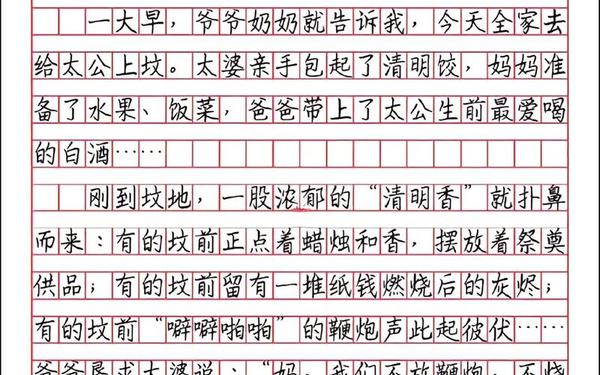 一大早，爷爷奶奶就告诉我，今天全家去
给太公上坟。太婆亲手包起了清明饺，妈妈准
备了水果、饭菜，爸爸带上了太公生前最爱喝
的白酒……
刚到坟地，一股浓郁的“清明香”就扑鼻
而来：有的坟前正点着蜡烛和香，摆放着祭奠
供品；有的坟前留有一堆纸钱燃烧后的灰烬；
有的坟前“噼噼啪啪”的鞭炮声此起彼伏……
爷爷恳求太婆说：“妈，我们不放鞭炮，不烧